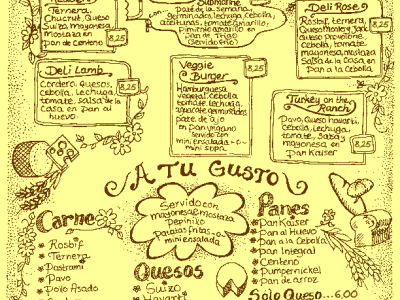 Rosbif, Ternera,
Chucrut, Queso
Suizo, Mayonesa
Mostaza en
pan de Centeno
8,25
Submarine
pate de la semana,
Germinados, lechuga, cebolla,
aceitunas, tomate, jamarillo,
pimiento amarillo en
pan de Trigo
(Servido frío)
Deli Rose
Rosbif, ternera,
Queso Monterey Jack
Queso Pepperoni,
cebolla, tomate
mayonesa, mostaza
Salsa de la Casa en
pan a la Cebolla
8,25
Deli Lamb
Cordero, Quesos,
cebolla, Lechuga,
tomate, salsa de la
Casa en pan al
huevo.
8,25
Veggie
Burger
Hamburguesa
vegetal, cebolla
tomate, lechuga,
aguacate, germinados
pate de ajo
en pan vegano
servido con
mini ensalada - o -
mini sopa
8,25
Turkey on the
Ranch
Pavo, Queso havarti,
Cebolla, lechuga,
tomate, Salsa,
mayonesa, en
pan Kaiser
8,25
A TU GUSTO
Carne
* Rosbif
* Ternera
* Pastrami
* Pavo
* Pollo Asado
Servido con
mayonesa & mostaza
Pepinillo
Patatas fritas - o -
mini ensalada
Quesos
* Suizo
* Havarti
Panes
* Pan Kaiser
* Pan al Huevo
* Pan a la Cebolla
* Pan Integral
* Centeno
* Pumpernickel
* Pan de arroz
Solo Queso...6.00